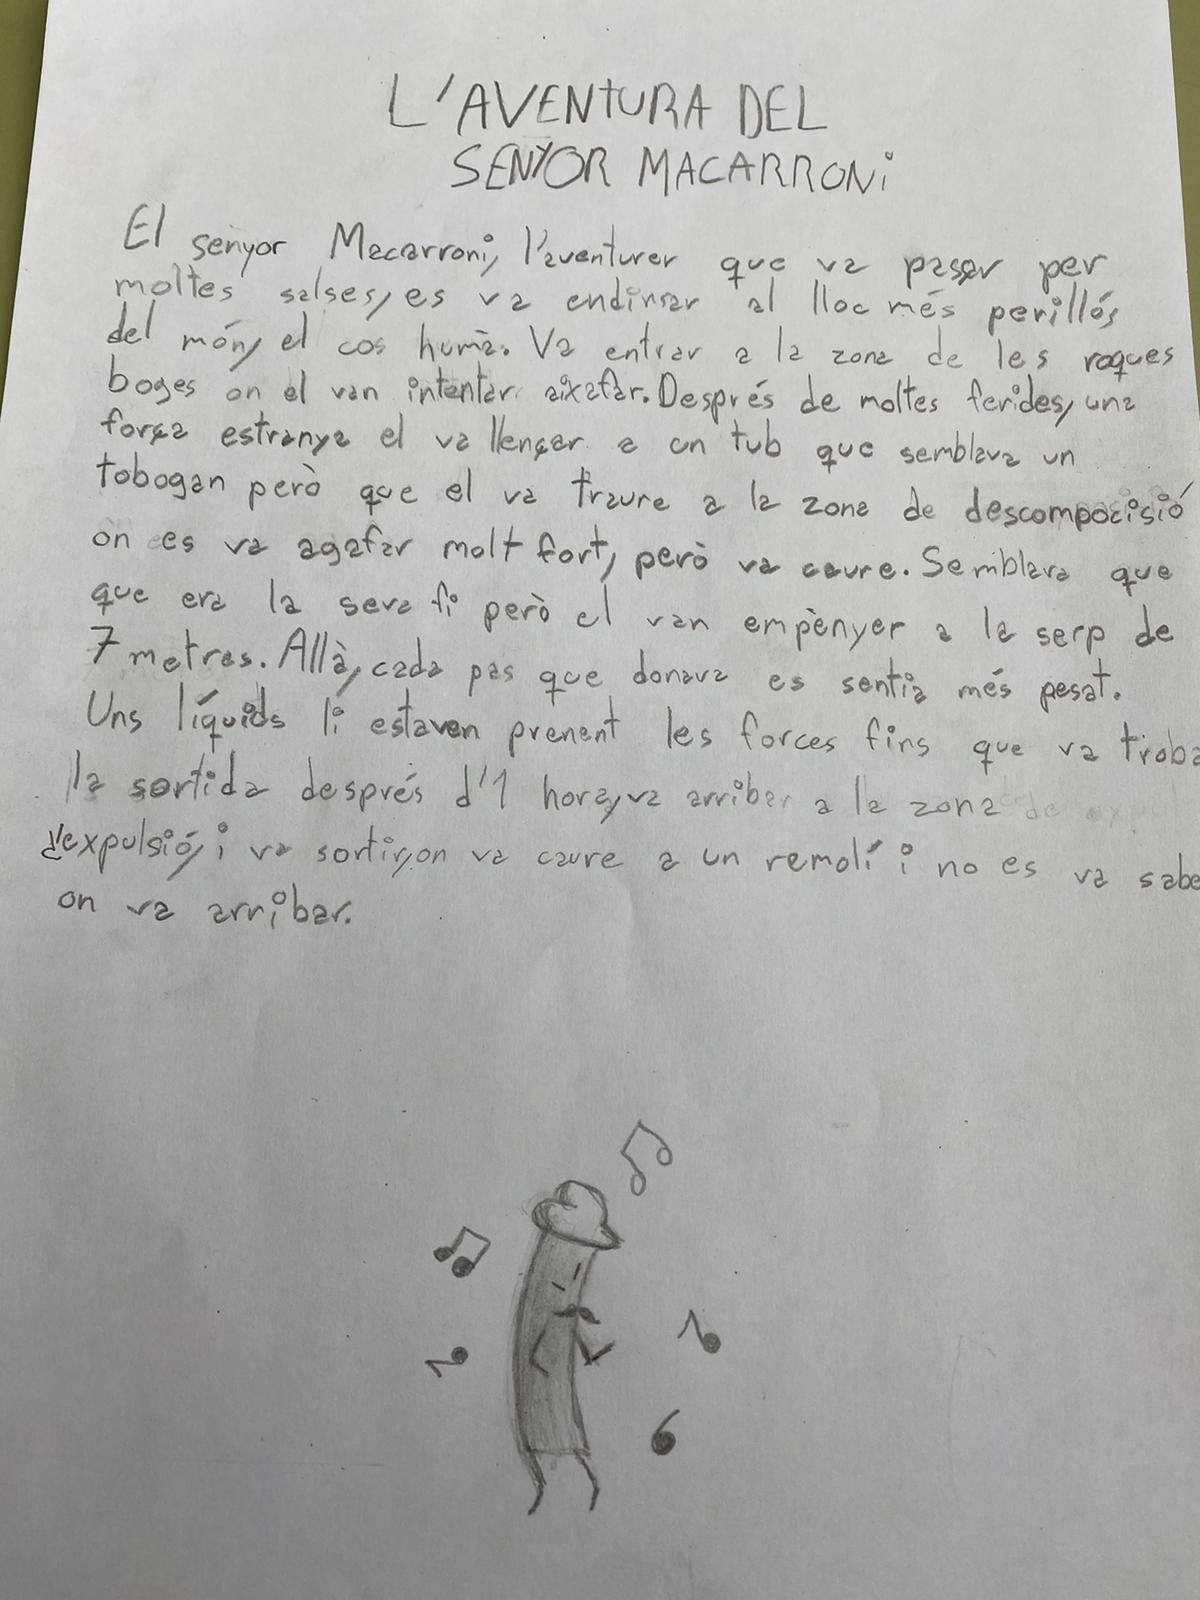 L'AVENTURA DEL
SENYOR MACARRONi
El senyor Macarroni, l'aventurer que va pasar per
moltes salses, es va endinsar al lloc més perillós
del món, el cos humà. Va entrar a la zona de les roques
boges on el van intentar aixafar. Després de moltes ferides, una
força estranya el va llençar a un tub que semblava un
tobogan però que el va traure a la zona de descompocisió
on es va agafar molt fort, però va caure. Semblava que
que era la seva fi però el van empènyer a la serp de
7 metres. Allà, cada pas que donava es sentia més pesat.
Uns líquids li estaven prenent les forces fins que va troba
la sortida després d'1 hora, va arribar a la zona
d'expulsió, i va sortir, on va caure a un remolí i no es va sabe
on va arribar.